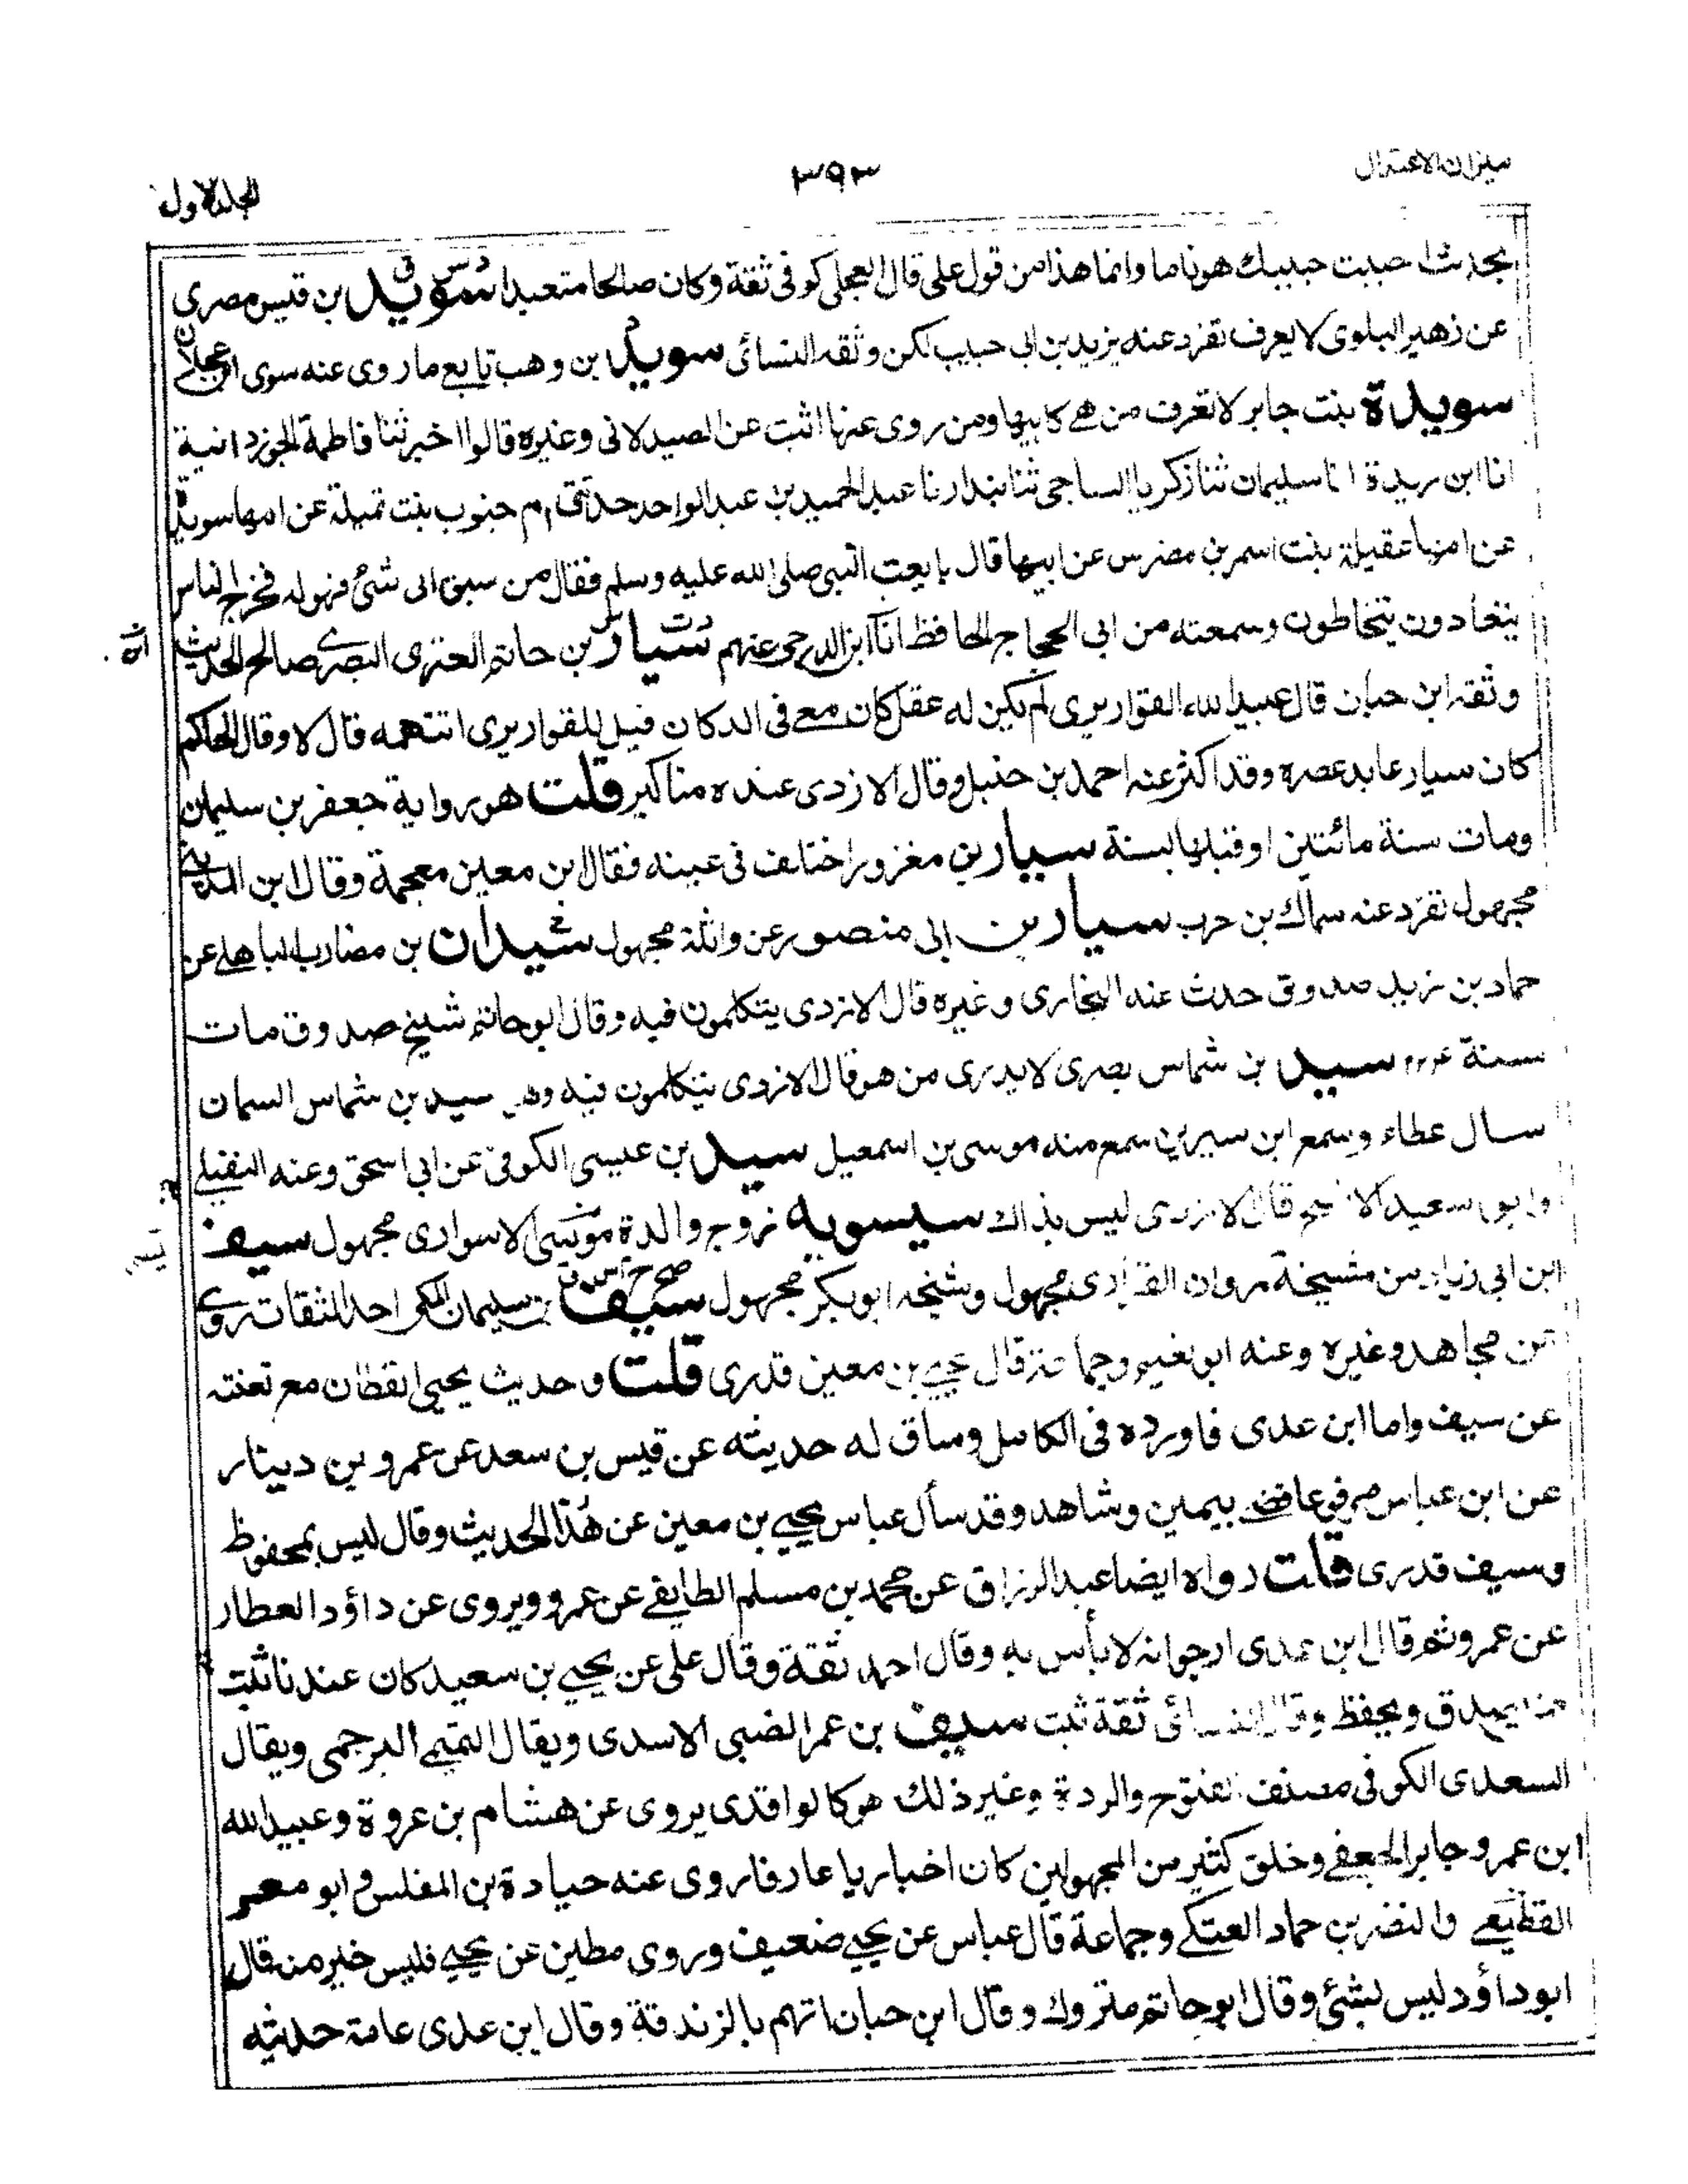 ميزان الاعتدال
٣٩٣
المجلد الاول
بحديث احببت حبيبك هونا ما وانما هذا من قول على قال العجلى كوفى ثقة وكان صالحا متعبدا سويد بن قيس مصرى
عن زهير البلوى لا يعرف تفرد عنه يزيد بن ابى حبيب لكن وثقه النسائى سويد بن وهب تابع ما روى عنه سوى ابن عجلان
سويدة بنت جابر لا تعرف من هے كابيها ومن روى عنها انبئت عن الصيدلانى وغيره قالوا اخبرتنا فاطمة الجوزدانية
انا ابن ريدة انا سليمان ثنا زكريا الساجى ثنا بندار نا عبد الحميد بن عبد الواحد حدثتنى ام جنوب بنت نميلة عن امها سويدة
عن امها عقيلة بنت اسمر بن مضرس عن ابيها قال بايعت النبى صلى الله عليه وسلم فقال من سبق الى شئ فهو له فخرج الناس
يتعادون يتخاطون وسمعته من ابى الحجاج الحافظ انا ابن الدرجى عنهم سيار بن حاتم العنزى البصرى صالح الحديث
وثقه ابن حبان قال عبيد الله القواريرى لم يكن له عقل كان معے فى الدكان قيل للقواريرى اتتهمه قال لا وقال الحاكم
كان سيار عابد عصره وقد اكثر عنه احمد بن حنبل وقال الازدى عنده مناكير قلت هو راوية جعفر بن سليمان
ومات سنة مائتين او قبلها بسنة سيار بن مغزور اختلف فى عينه فقال ابن معين معجمة وقال ابن المدينى
مجهول تفرد عنه سماك بن حرب سيار بن ابى منصور عن واثلة مجهول شيدان بن مضارب الباهلے عن
حماد بن زيد صدوق حدث عنه البخارى وغيره قال الازدى يتكلمون فيه وقال ابو حاتم شيخ صدوق مات
سنة سيد بن شماس بصرى لا يدرى من هو قال الازدى يتكلمون فيه وهو سيد بن شماس السمان
سال عطاء وسمع ابن سيرين سمع منه موسى بن اسمعيل سيد بن عيسى الكوفى عن ابى اسحق وعنه النفيلے
وابو سعيد الاشج قال الازدى ليس بذاك سيسويه زوج والدة موسى الاسوارى مجهول سيف
ابن ابى زياد من مشيخة مروان الفزارى مجهول وشيخه ابو بكر مجهول سيف بن سليمان المكى احد الثقات روى
عن مجاهد وغيره وعنه ابو نعيم وجماعة قال يحيے بن معين قدرى قلت وحديث يحيى القطان مع تعنته
عن سيف واما ابن عدى فاورده فى الكامل وساق له حديثه عن قيس بن سعد عن عمرو بن دينار
عن ابن عباس مرفوعا قضے بيمين وشاهد وقد سأل عباس يحيے بن معين عن هذا الحديث وقال ليس بمحفوظ
وسيف قدرى قلت رواه ايضا عبد الرزاق عن محمد بن مسلم الطايفے عن عمرو ويروى عن داؤد العطار
عن عمرو ثم قال ابن عدى ارجو انه لا بأس به وقال احمد ثقة وقال على عن يحيے بن سعيد كان عندنا ثبت
يصدق ويحفظ وقال النسائى ثقة ثبت سيف بن عمر الضبى الاسدى ويقال التميمے البرجمى ويقال
السعدى الكوفى مصنف الفتوح والردة وغير ذلك هو كالواقدى يروى عن هشام بن عروة وعبيد الله
ابن عمر وجابر الجعفے وخلق كثير من المجهولين كان اخباريا عارفا روى عنه جبارة بن المغلس وابو معمر
القطيعے والنضر بن حماد العتكے وجماعة قال عباس عن يحيے ضعيف وروى مطين عن يحيے فليس خير منه قال
ابو داؤد ليس بشئ وقال ابو حاتم متروك وقال ابن حبان اتهم بالزندقة وقال ابن عدى عامة حديثه